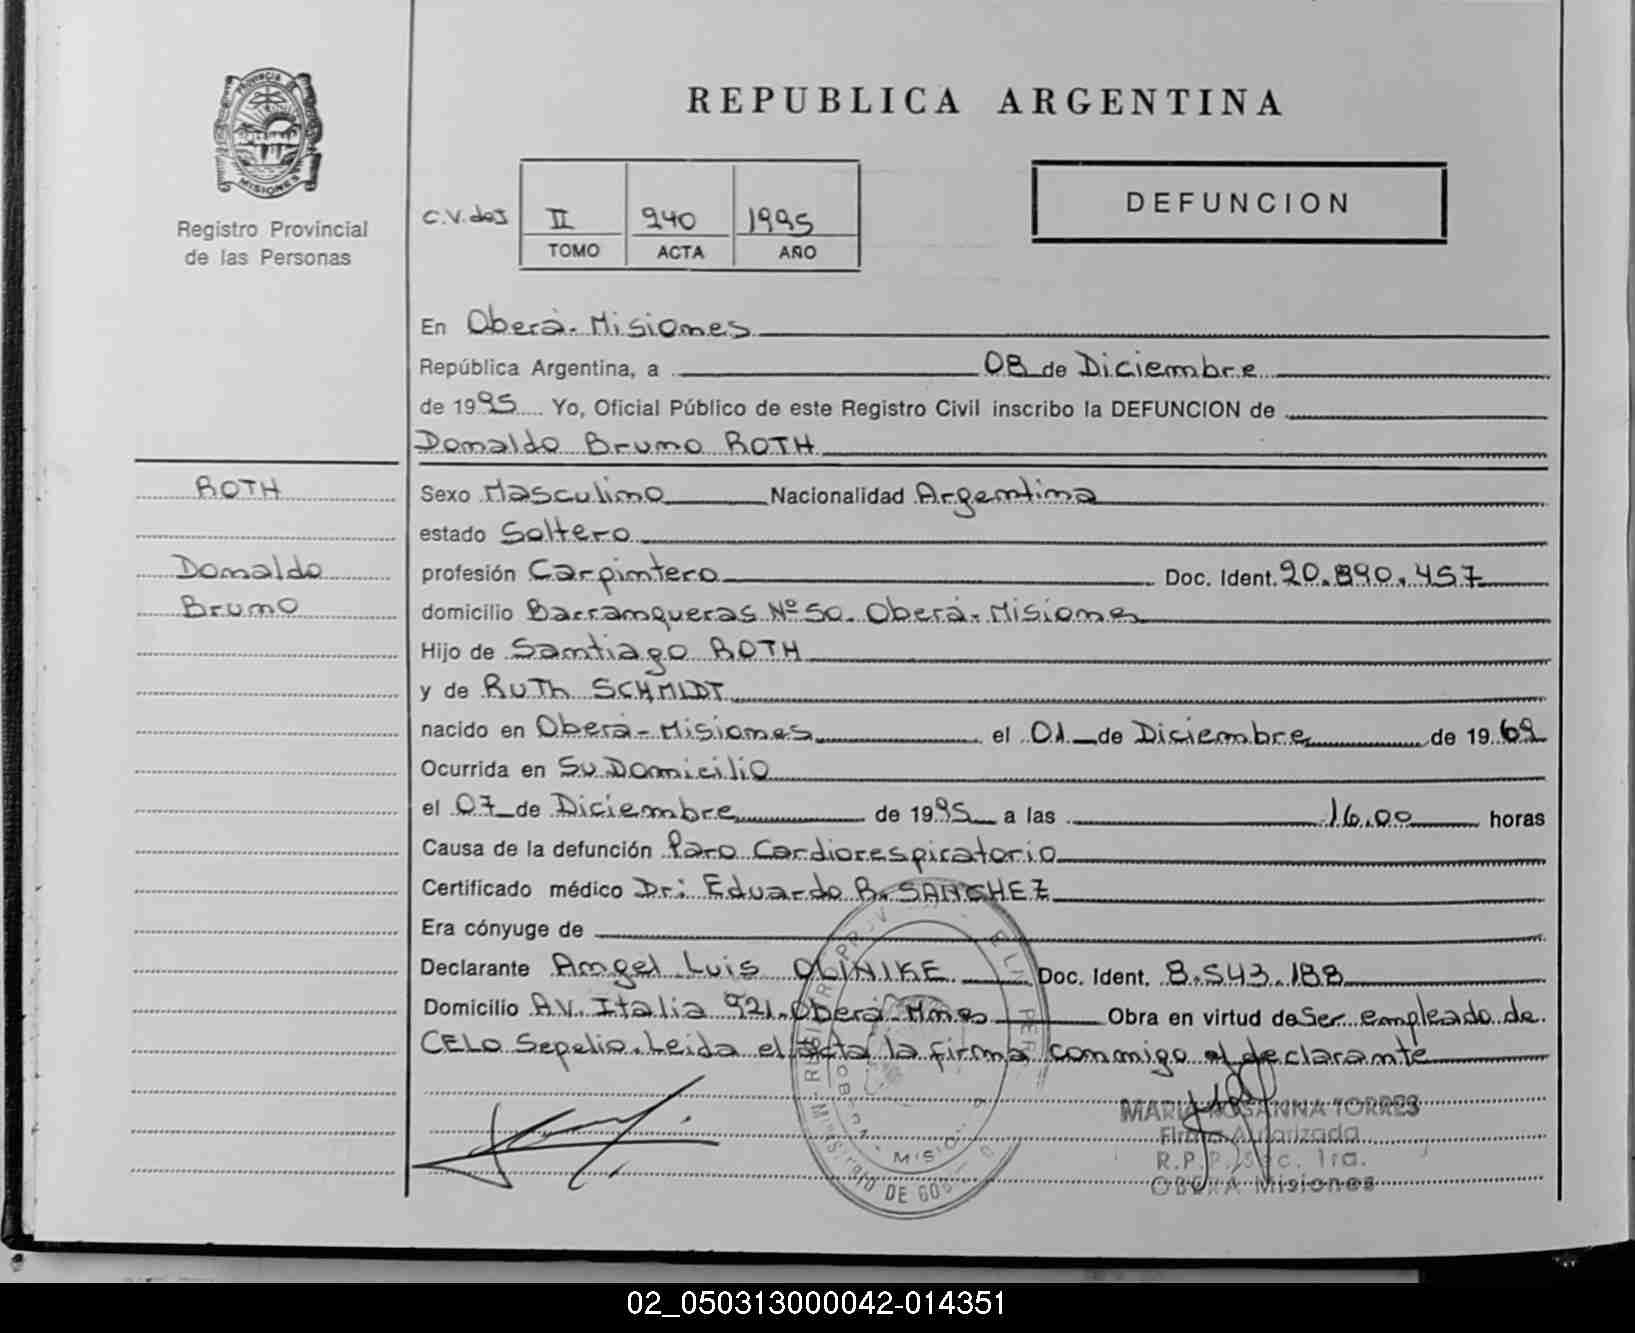 REPUBLICA ARGENTINA
PROVINCIA DE
MISIONES
Registro Provincial
de las Personas
C.V. dos II 240 1995
TOMO ACTA AÑO
DEFUNCION
En Oberá - Misiones
República Argentina, a 08 de Diciembre
de 1995 Yo, Oficial Público de este Registro Civil inscribo la DEFUNCION de
Donaldo Bruno ROTH
ROTH
Donaldo
Bruno
Sexo Masculino Nacionalidad Argentina
estado Soltero
profesión Carpintero Doc. Ident. 20.890.457
domicilio Barranqueras Nº 50. Oberá - Misiones
Hijo de Santiago ROTH
y de RUTh SCHMIDT
nacido en Oberá - Misiones el 01 de Diciembre de 1969
Ocurrida en Su Domicilio
el 07 de Diciembre de 1995 a las 16,00 horas
Causa de la defunción Paro Cardiorespiratorio
Certificado médico Dr: Eduardo B. SANCHEZ
Era cónyuge de
Declarante Angel Luis OLINIKE Doc. Ident. 8.543.188
Domicilio AV. Italia 921. Oberá - Mnes Obra en virtud de Ser empleado de
CELO Sepelio. Leida el acta la firma conmigo el declarante
MARIA ROSANNA TORRES
Firma Autorizada
R.P.P. Sec. 1ra.
OBERA Misiones
02_050313000042-014351